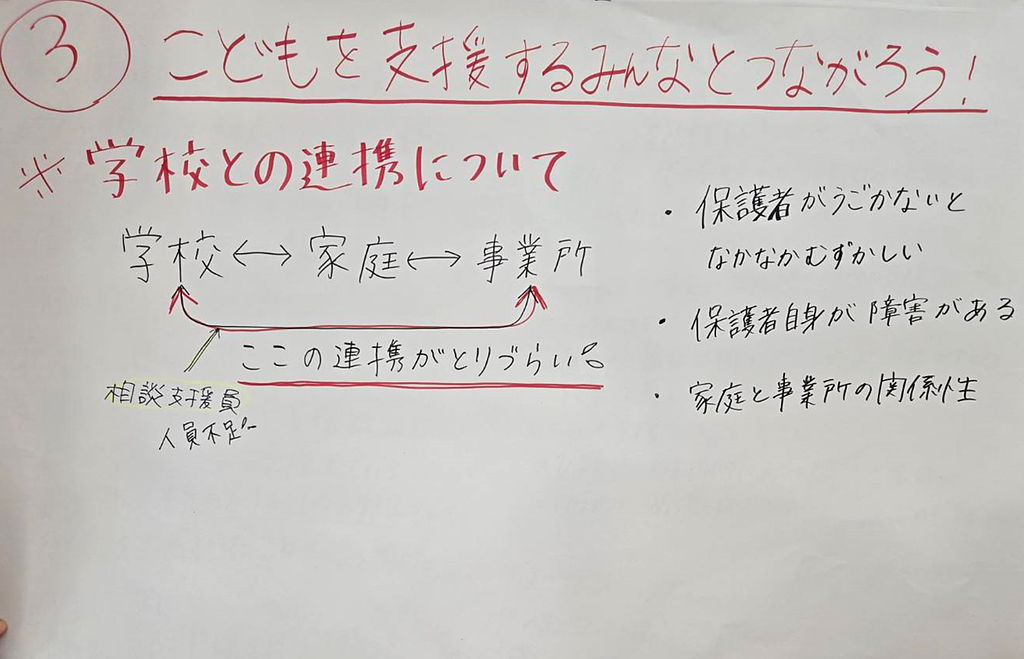 ③ こどもを支援するみんなとつながろう!
※ 学校との連携について
学校 ↔ 家庭 ↔ 事業所
ここの連携がとりづらい。
相談支援員
人員不足
・保護者がうごかないと
なかなかむずかしい
・保護者自身が障害がある
・家庭と事業所の関係性